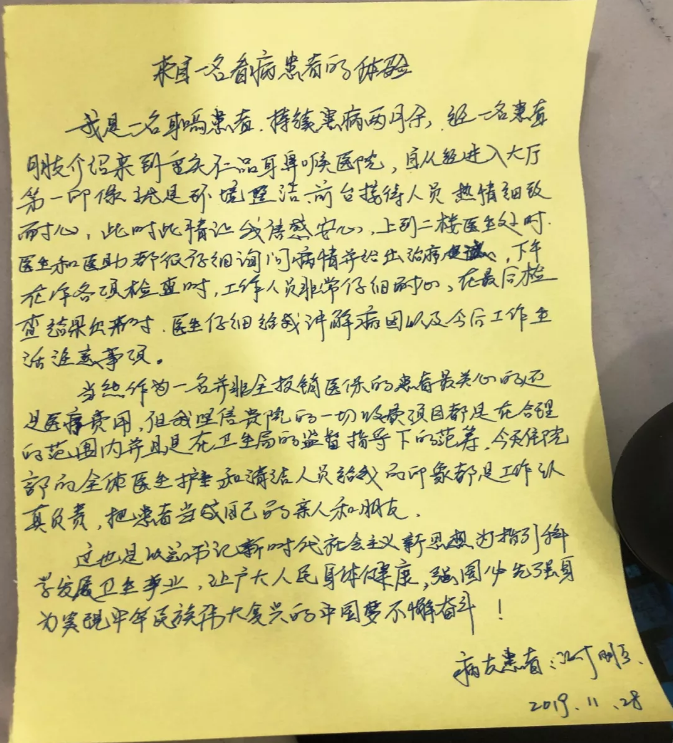 来自一名看病患者的体验
我是一名耳鸣患者，持续患病两月余，经一名患者
朋友介绍来到重庆仁品耳鼻喉医院，自从经进入大厅
第一印像就是环境整洁、前台接待人员热情细致
而耐心，此时此情让我倍感安心，上到二楼医生处时
医生和医助都很仔细询问病情并给出治疗建议，下午
在作各项检查时，工作人员非常仔细耐心，在最后检
查结果出来时，医生仔细给我讲解病因以及今后工作生
活注意事项。
当然作为一名并非全报销医保的患者最关心的还
是医疗费用，但我坚信贵院的一切收费项目都是在合理
的范围内并且是在卫生局的监督指导下的范筹，今天住院
部的全体医生护士和清洁人员给我的印象都是工作认
真负责，把患者当成自己的亲人和朋友。
这也是以总书记新时代社会主义新思想为指引科
学发展卫生事业，让广大人民身体健康，强国必先强身
为实现中华民族伟大复兴的中国梦不懈奋斗！
病友患者：
2019.11.28